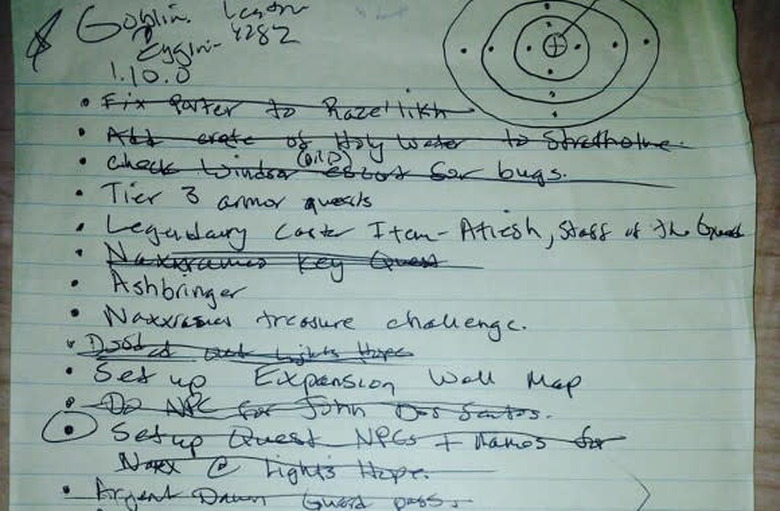 Goblin. Leather
Eygin- 4282
1.10.0
• Fix Porter to Raze'likh
• Add crate of Holy Water to Stratholme.
• Check Windsor (BRD) escort for bugs.
• Tier 3 armor quests
• Legendary Caster Item - Atiesh, Staff of the Guard
• Naxxramas Key Quest
• Ashbringer
• Naxxramas treasure challenge.
• out Lights Hope
• Set up Expansion Wall Map
• Do NPC for John Dos Santos.
• Setup Quest NPCs + Names for
Naxx @ Lights Hope.
• Argent Dawn Guard pass.